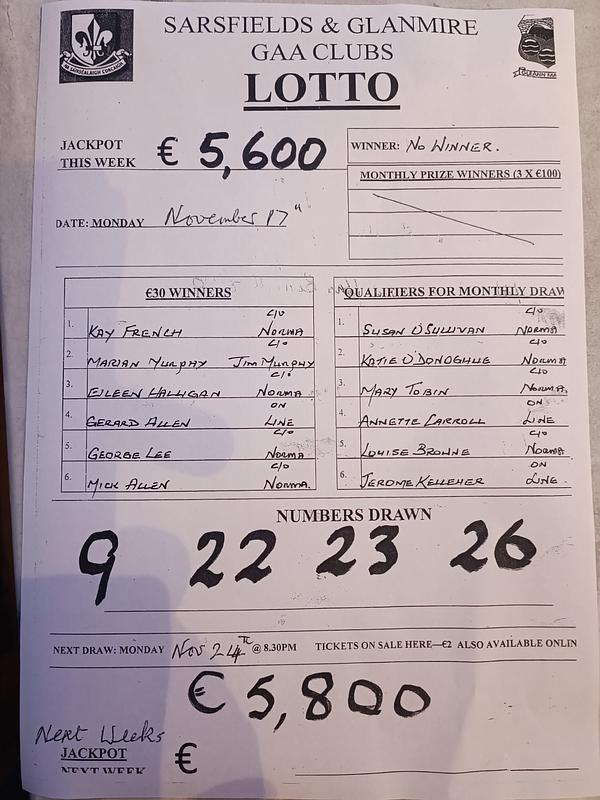 SARSFIELDS & GLANMIRE
GAA CLUBS
LOTTO
JACKPOT
THIS WEEK € 5,600
WINNER: NO WINNER.
MONTHLY PRIZE WINNERS (3 X €100)
DATE: MONDAY November 17"
€30 WINNERS
1. KAY FRENCH C/O NORMA
2. MARIAN MURPHY C/O JIM MURPHY
3. EILEEN HALLIGAN C/O NORMA
4. GERARD ALLEN ON LINE
5. GEORGE LEE C/O NORMA
6. MICK ALLEN C/O NORMA.
QUALIFIERS FOR MONTHLY DRAW
1. SUSAN O'SULLIVAN C/O NORMA
2. KATIE O'DONOGHUE C/O NORMA
3. MARY TOBIN C/O NORMA.
4. ANNETTE CARROLL ON LINE
5. LOUISE BROWNE C/O NORMA
6. JEROME KELLEHER ON LINE.
NUMBERS DRAWN
9 22 23 26
NEXT DRAW: MONDAY Nov 24TH @ 8.30PM TICKETS ON SALE HERE—€2 ALSO AVAILABLE ONLIN
€ 5,800
Next Weeks
JACKPOT €
NEXT WEEK